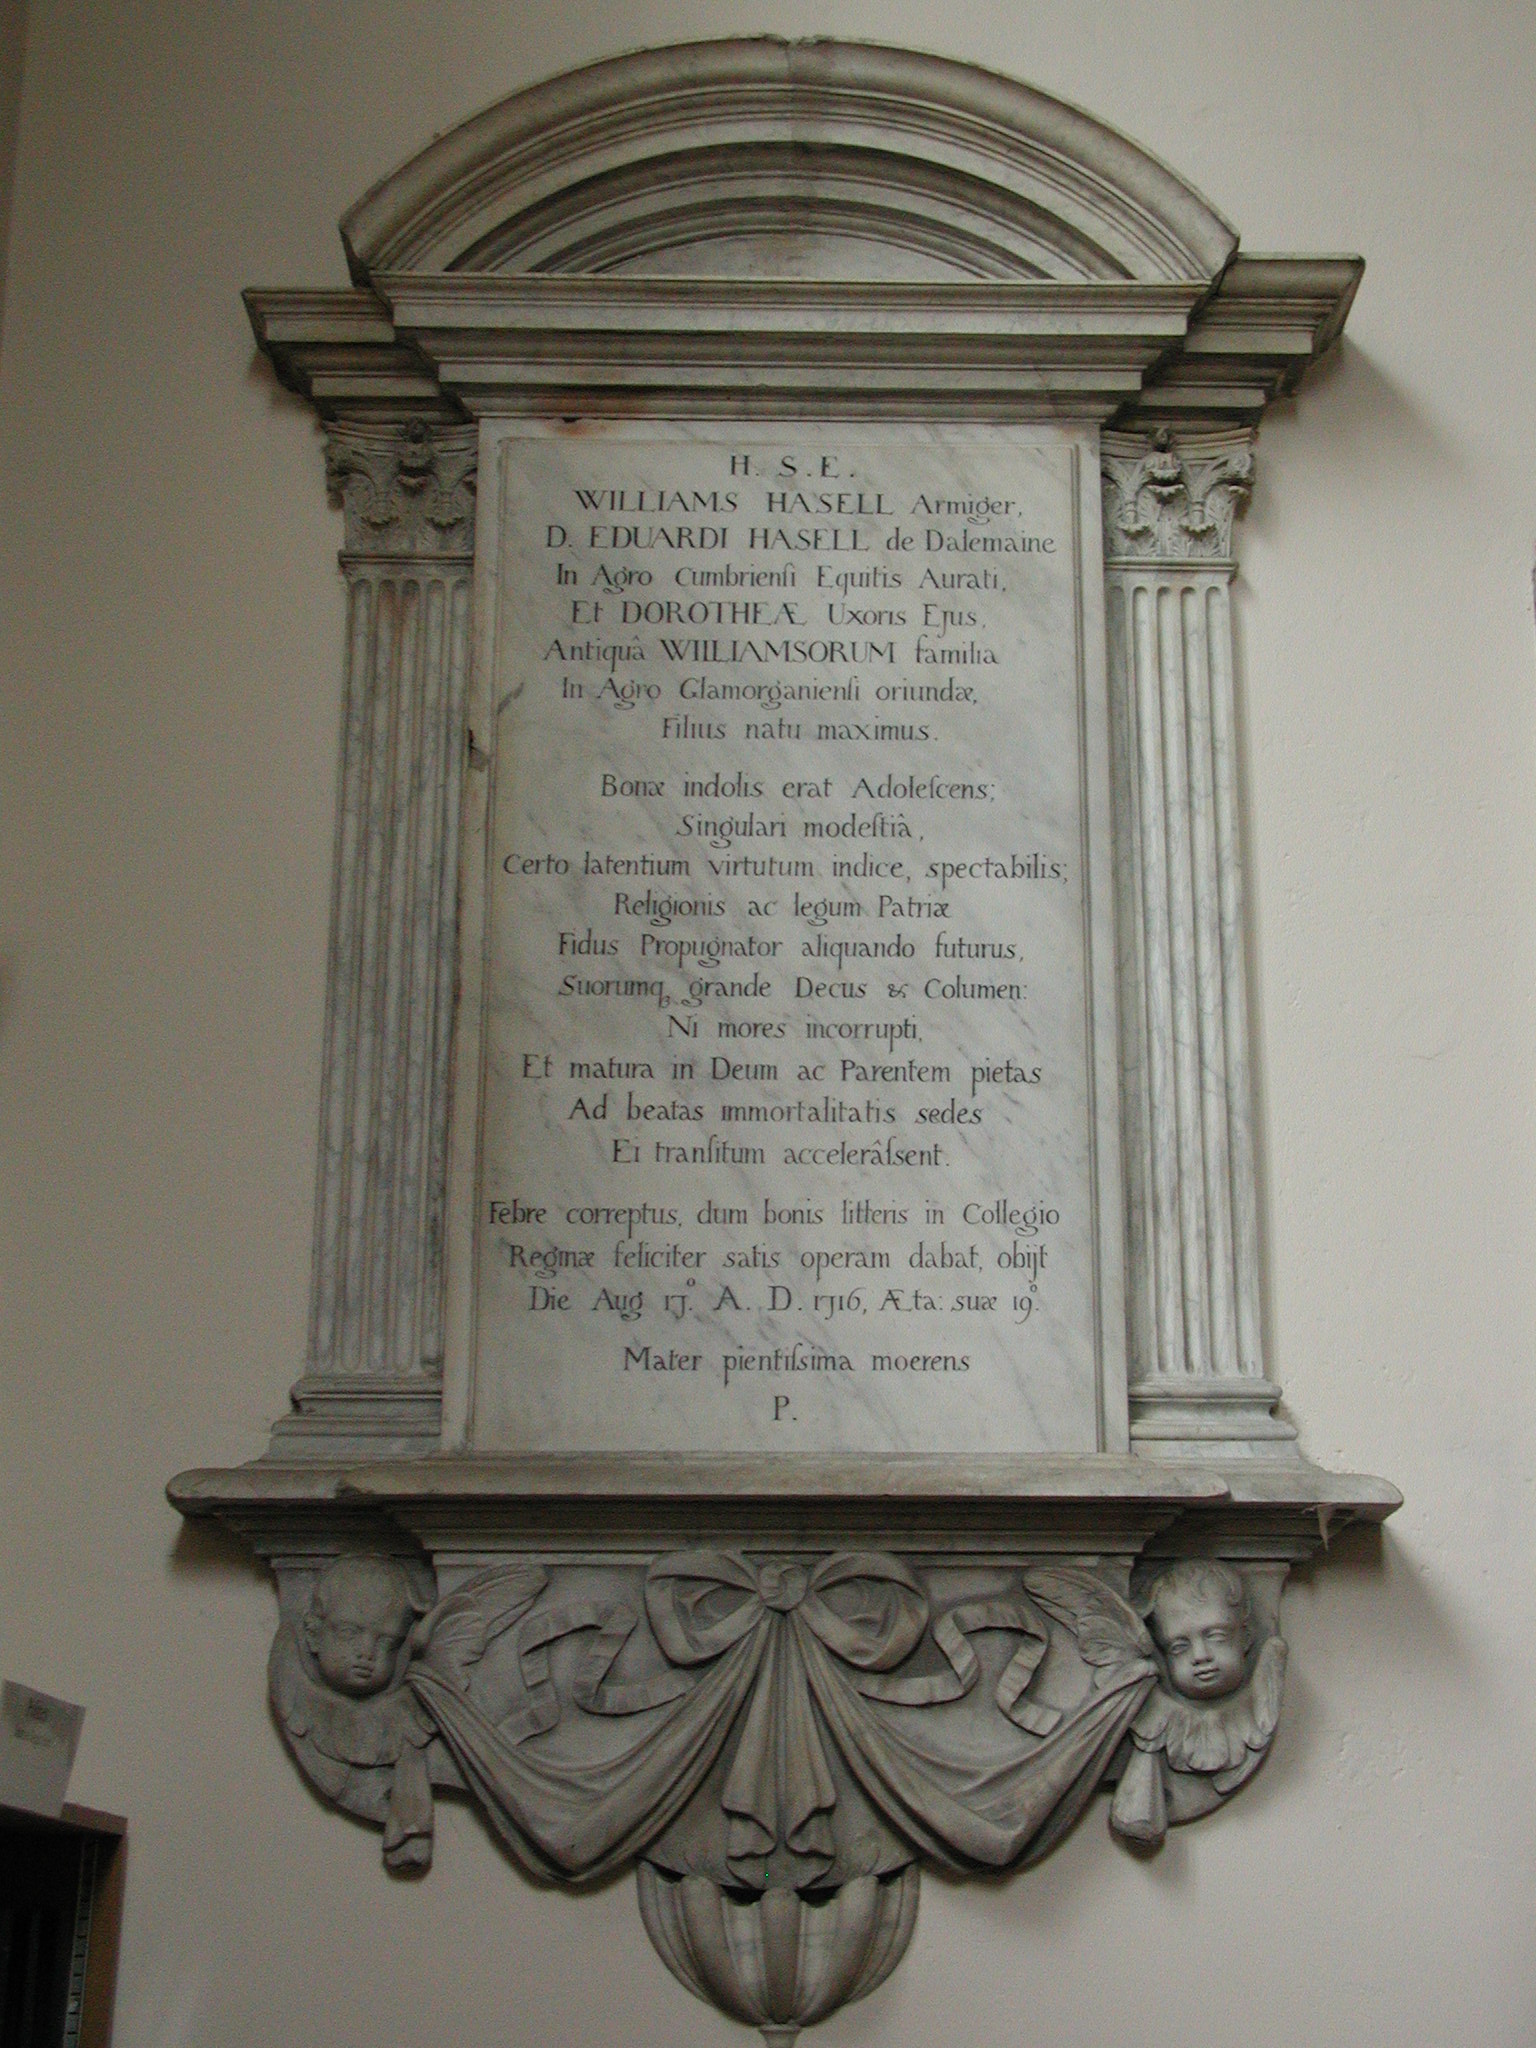 H. S. E.
WILLIAMS HASELL Armiger,
D. EDUARDI HASELL de Dalemaine
In Agro Cumbrienſi Equitis Aurati,
Et DOROTHEÆ Uxoris Ejus,
Antiquâ WILLIAMSORUM familia
In Agro Glamorganienſi oriundæ,
Filius natu maximus.
Bonæ indolis erat Adoleſcens;
Singulari modeſtiâ,
Certo latentium virtutum indice, spectabilis;
Religionis ac legum Patriæ
Fidus Propugnator aliquando futurus,
Suorumq, grande Decus & Columen:
Ni mores incorrupti,
Et matura in Deum ac Parentem pietas
Ad beatas immortalitatis sedes
Ei tranſitum accelerâſsent.
Febre correptus, dum bonis litteris in Collegio
Reginæ feliciter satis operam dabat, obijt
Die Aug 17º. A. D. 1716, Æta: suæ 19º.
Mater pientiſsima moerens
P.